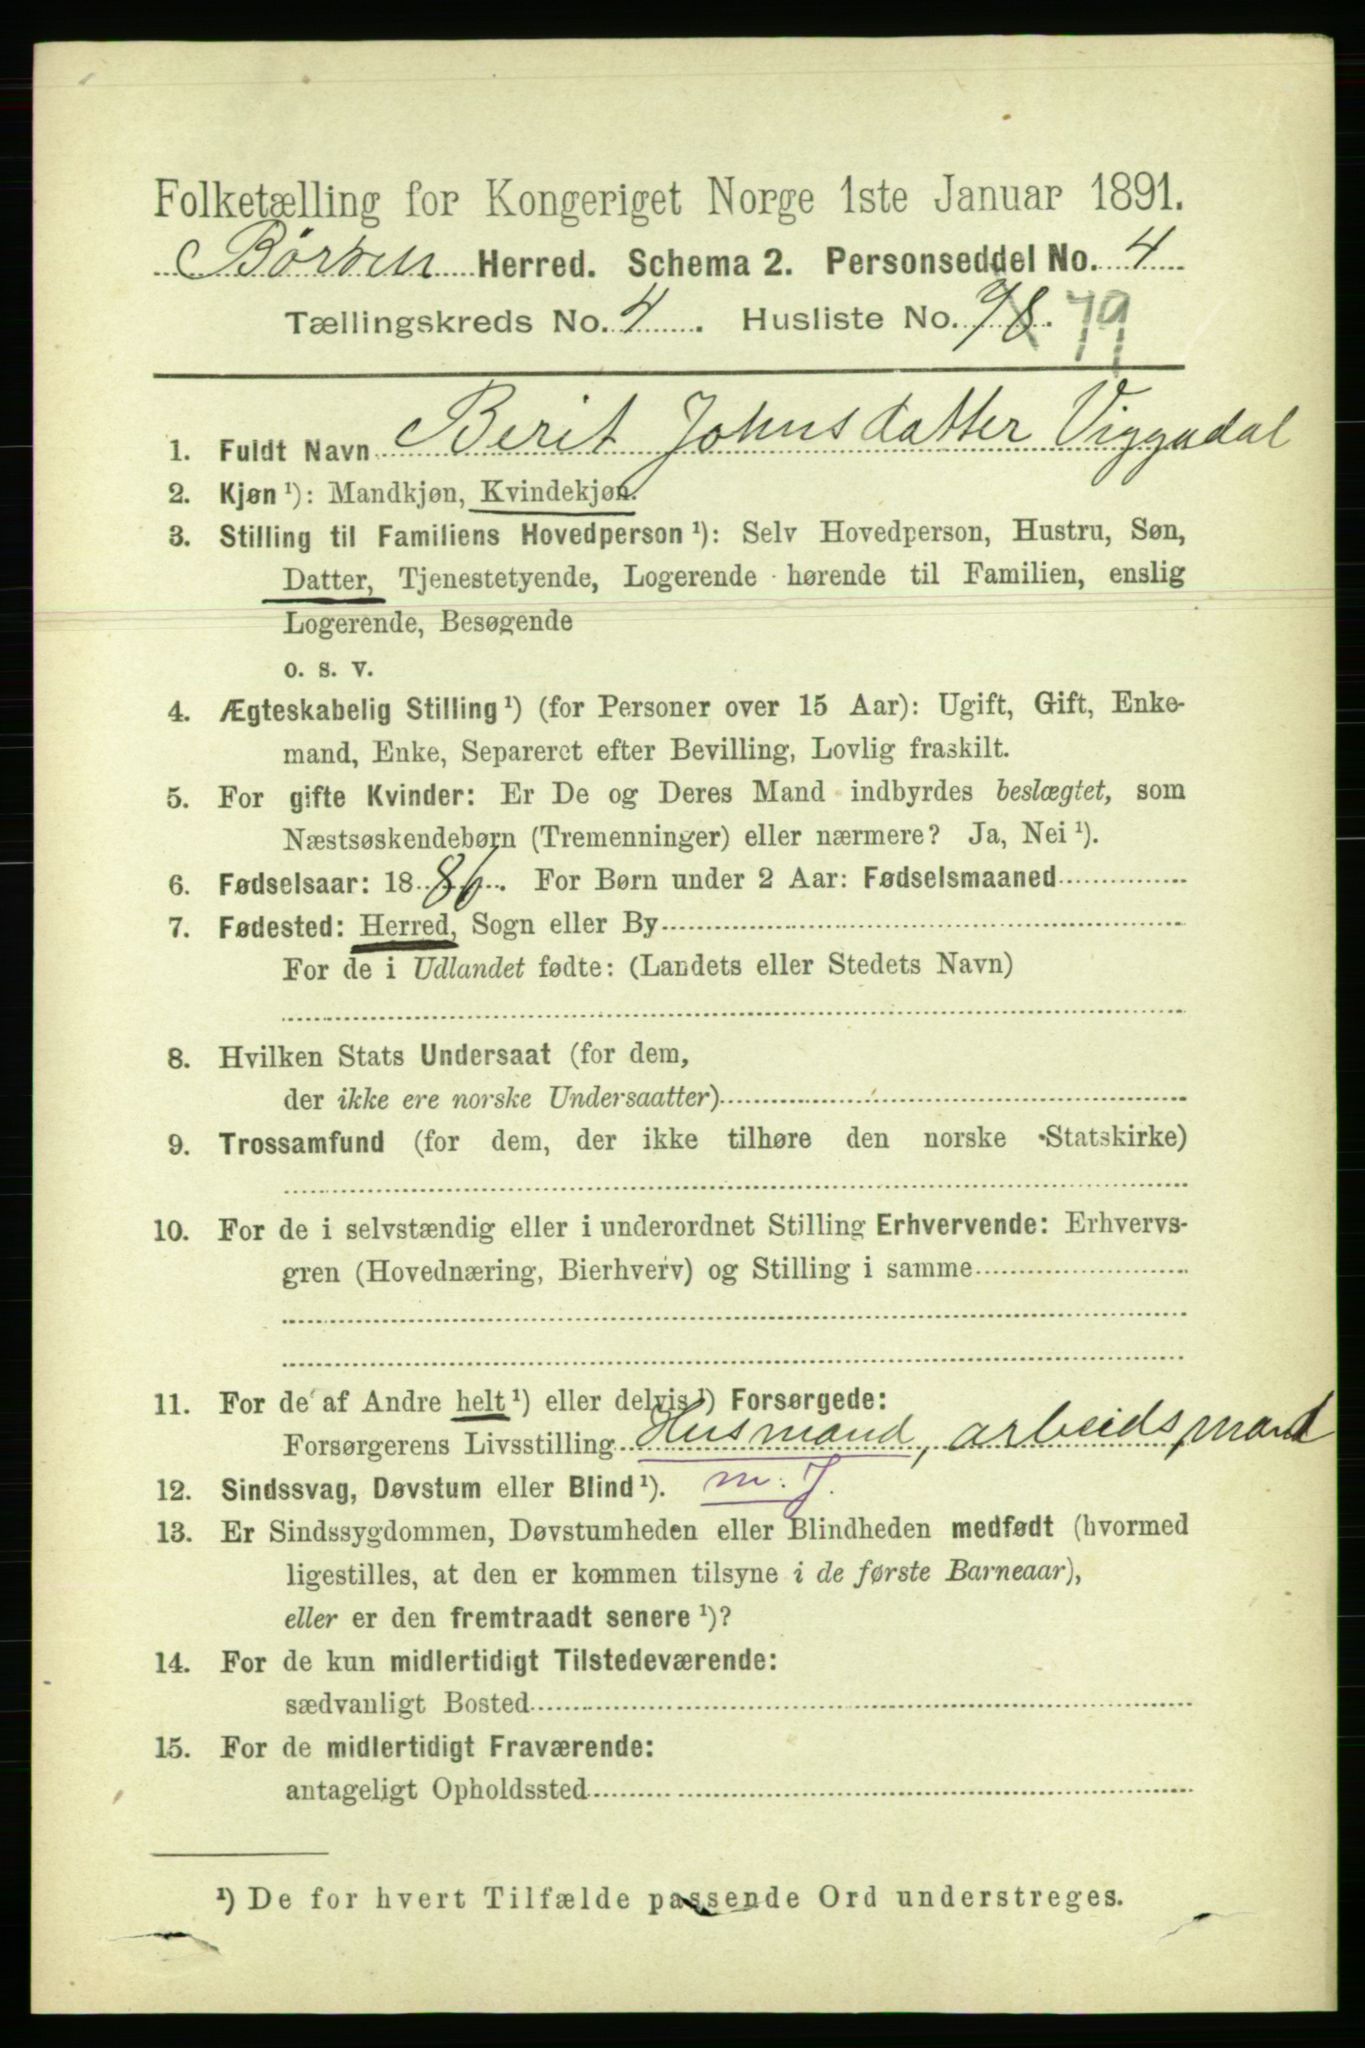 Folketælling for Kongeriget Norge 1ste Januar 1891.
Børsen Herred. Schema 2. Personseddel No. 4
Tællingskreds No. 4. Husliste No. 78. 79
1. Fuldt Navn Berit Johnsdatter Viggadal
2. Kjøn ¹): Mandkjøn, Kvindekjøn.
3. Stilling til Familiens Hovedperson ¹): Selv Hovedperson, Hustru, Søn,
Datter, Tjenestetyende, Logerende hørende til Familien, enslig
Logerende, Besøgende
o. s. v.
4. Ægteskabelig Stilling ¹) (for Personer over 15 Aar): Ugift, Gift, Enke-
mand, Enke, Separeret efter Bevilling, Lovlig fraskilt.
5. For gifte Kvinder: Er De og Deres Mand indbyrdes beslægtet, som
Næstsøskendebørn (Tremenninger) eller nærmere? Ja, Nei ¹).
6. Fødselsaar: 1886. For Børn under 2 Aar: Fødselsmaaned
7. Fødested: Herred, Sogn eller By
For de i Udlandet fødte: (Landets eller Stedets Navn)
8. Hvilken Stats Undersaat (for dem,
der ikke ere norske Undersaatter)
9. Trossamfund (for dem, der ikke tilhøre den norske Statskirke)
10. For de i selvstændig eller i underordnet Stilling Erhvervende: Erhvervs-
gren (Hovednæring, Bierhverv) og Stilling i samme
11. For de af Andre helt ¹) eller delvis ¹) Forsørgede:
Forsørgerens Livsstilling Husmand, arbeidsmand
12. Sindssvag, Døvstum eller Blind ¹). m. J.
13. Er Sindssygdommen, Døvstumheden eller Blindheden medfødt (hvormed
ligestilles, at den er kommen tilsyne i de første Barneaar),
eller er den fremtraadt senere ¹)?
14. For de kun midlertidigt Tilstedeværende:
sædvanligt Bosted
15. For de midlertidigt Fraværende:
antageligt Opholdssted
¹) De for hvert Tilfælde passende Ord understreges.